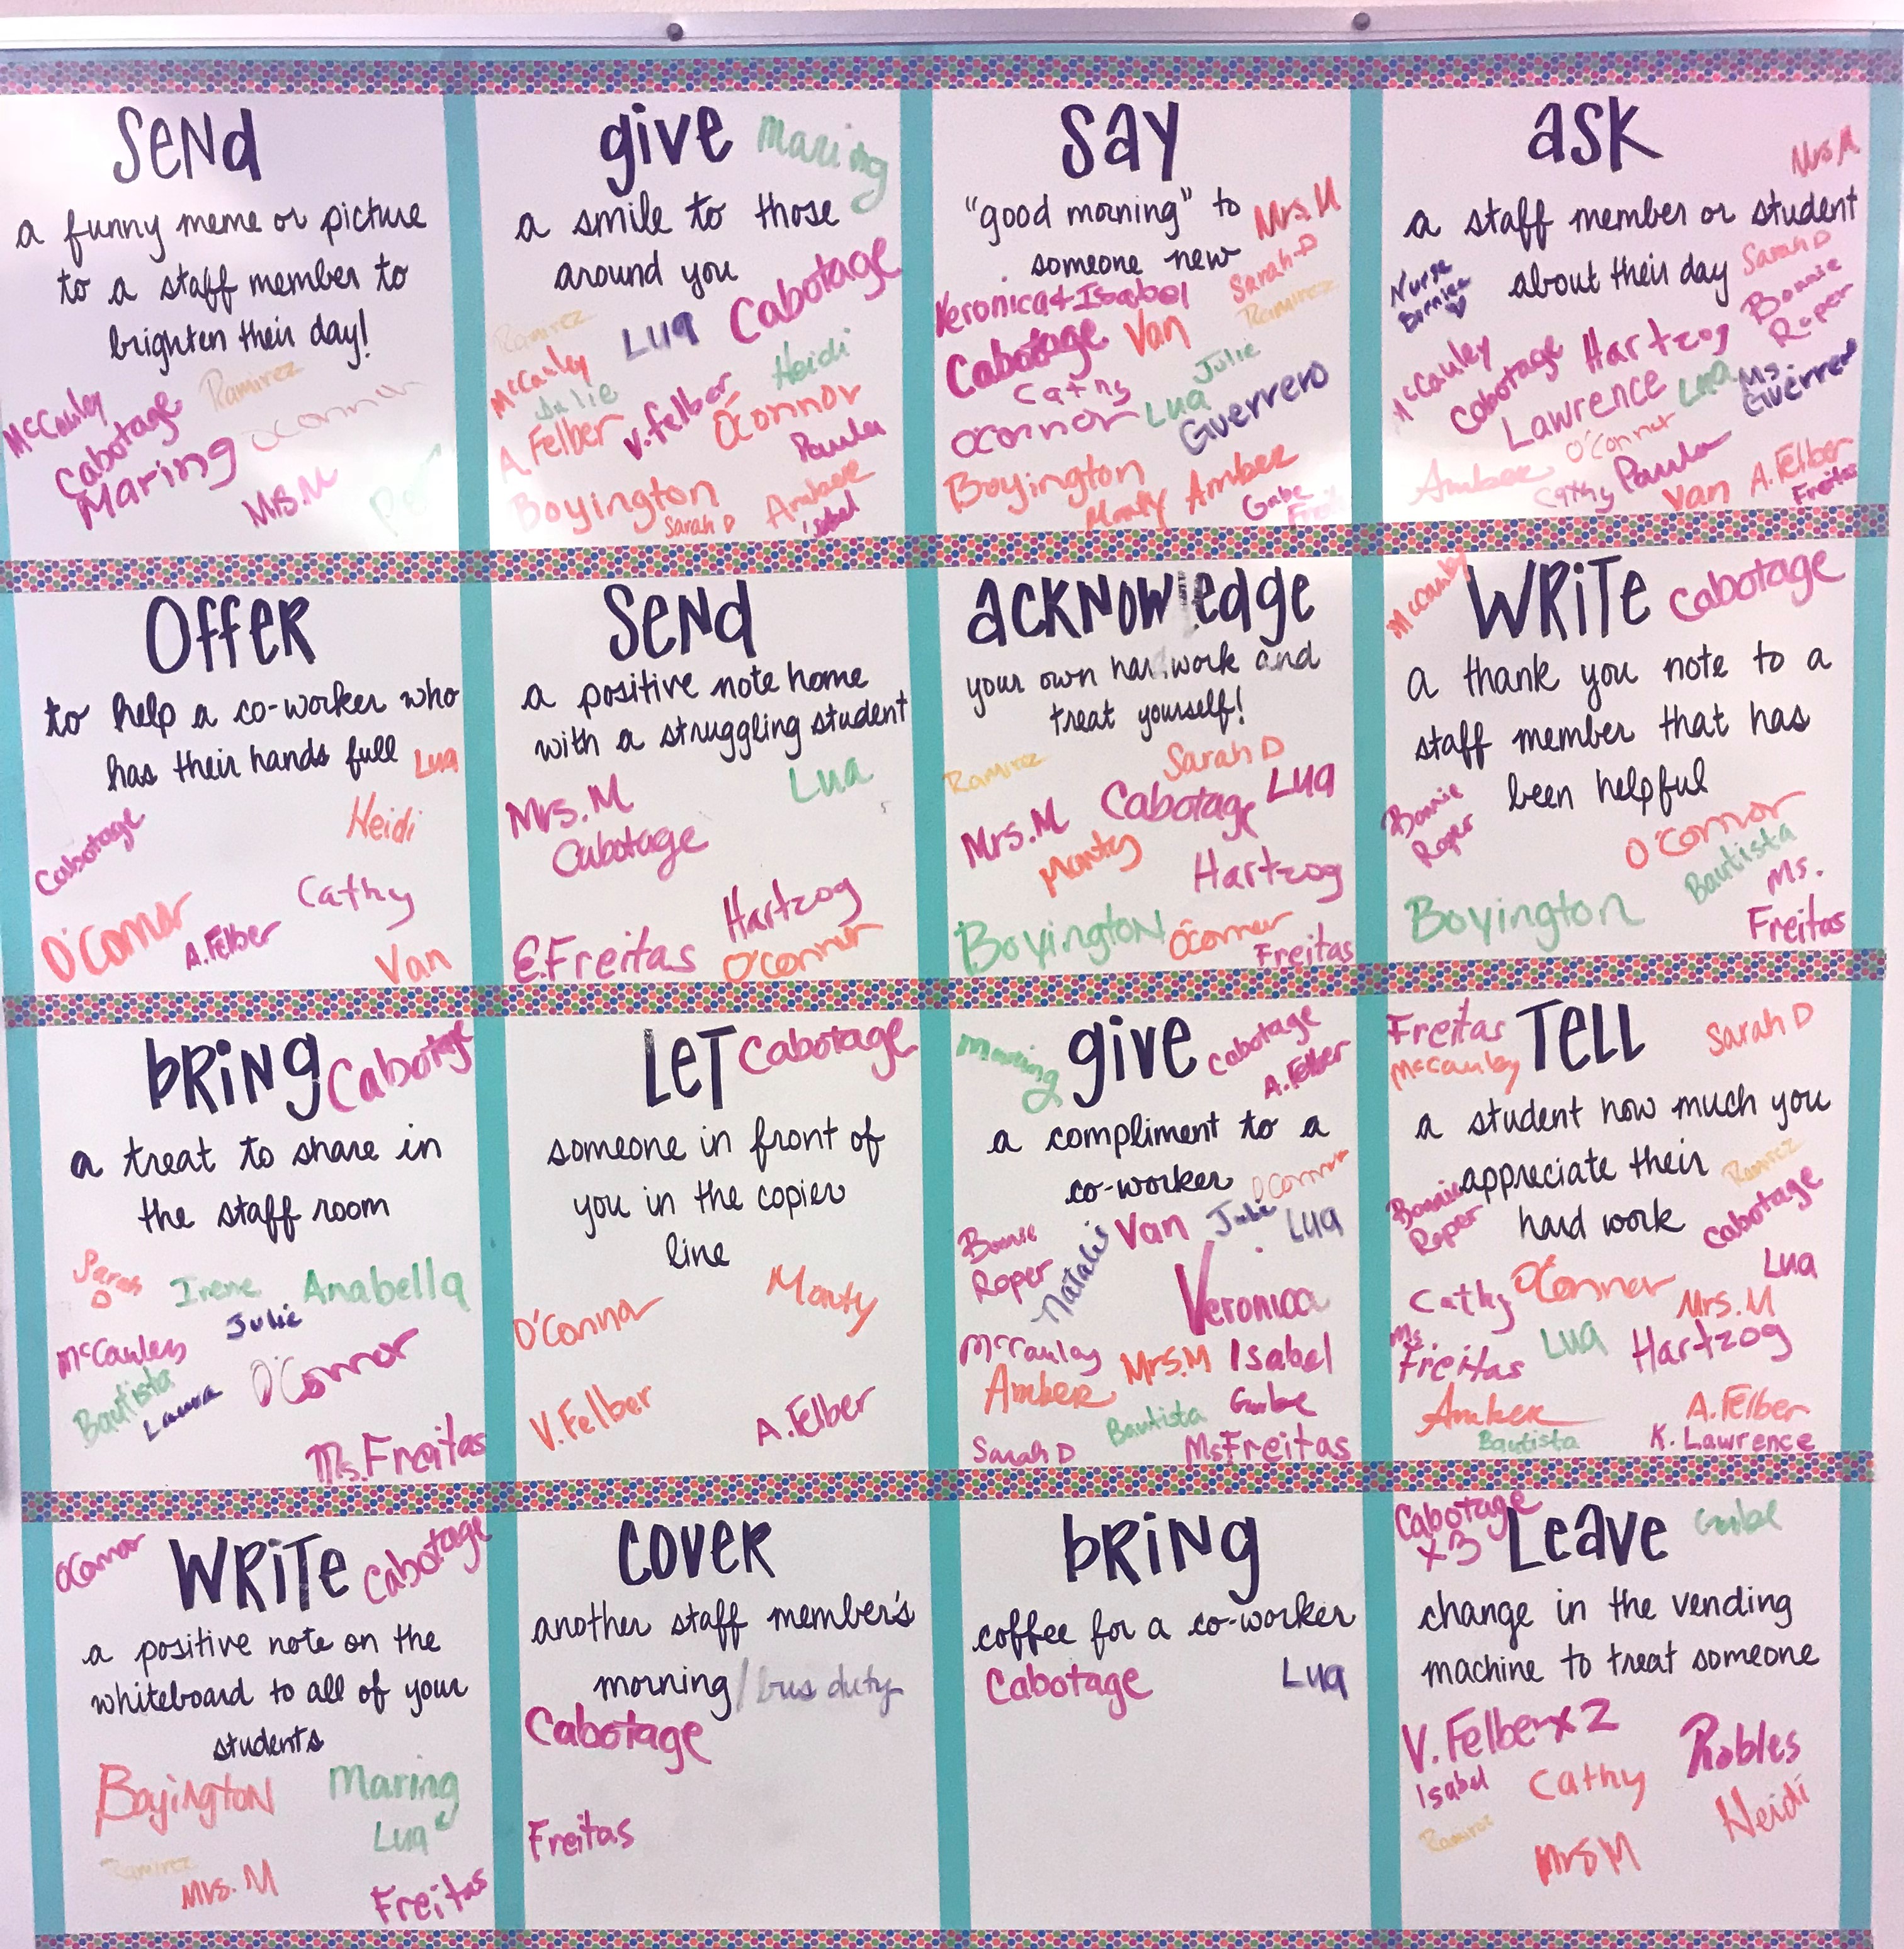 SeNd
a funny meme or picture
to a staff member to
brighten their day!
McCauley
Ramirez
Cabotage
O'Connor
Maring
Mrs. M
give Maring
a smile to those
around you
Cabotage
Ramirez
Lua
McCauley
Heidi
Julie
V. Felber
O'Connor
A. Felber
Paula
Boyington
Sarah D
Amber
Isabel
SAY
"good morning" to
Mrs. M
someone new
Sarah D
Veronica + Isabel
Ramirez
Cabotage
Van
Julie
Cathy
Lua
O'Connor
Guerrero
Boyington
Monty
Amber
Gabe
Freitas
ask
Mrs M
a staff member or student
about their day
Sarah D
Nurse
Bonnie
Roper
McCauley
Cabotage
Hartzog
Lawrence
Lua
Ms.
Guerrero
O'Connor
Amber
Cathy
Paula
Van
A. Felber
Freitas
OffeR
to help a co-worker who
has their hands full
Lua
Cabotage
Heidi
Cathy
O'Connor
A. Felber
Van
SeNd
a positive note home
with a struggling student
Mrs. M
Lua
Cabotage
Hartzog
E. Freitas
O'Connor
acKNowledge
your own hard work and
treat yourself!
Ramirez
Sarah D
Mrs. M
Cabotage
Lua
Monty
Hartzog
Boyington
O'Connor
Freitas
McCauley
WRiTe
Cabotage
a thank you note to a
staff member that has
been helpful
Bonnie
Roper
O'Connor
Bautista
Boyington
Ms.
Freitas
bRiNg
Cabotage
a treat to share in
the staff room
Sarah
D
Irene
Anabella
Julie
McCauley
Bautista
Laura
O'Connor
Ms. Freitas
LeT
Cabotage
someone in front of
you in the copier
line
O'Connor
Monty
V. Felber
A. Felber
Maring
give
Cabotage
A. Felber
a compliment to a
co-worker
O'Connor
Bonnie
Roper
Natalie
Van
Julie
Lua
Veronica
McCauley
Mrs. M
Isabel
Amber
Gabe
Bautista
Sarah D
Ms Freitas
Freitas
TeLL
Sarah D
McCauley
a student how much you
appreciate their
Ramirez
Bonnie
Roper
hard work
Cabotage
Lua
Cathy
O'Connor
Mrs. M
Ms.
Freitas
Lua
Hartzog
Amber
A. Felber
Bautista
K. Lawrence
O'Connor
WRiTe
Cabotage
a positive note on the
whiteboard to all of your
students
Boyington
Maring
Lua
Ramirez
Mrs. M
Freitas
coveR
another staff member's
morning/bus duty
Cabotage
Freitas
bRiNg
coffee for a co-worker
Cabotage
Lua
Cabotage
x3
Leave
Gabe
change in the vending
machine to treat someone
V. Felber x2
Robles
Isabel
Cathy
Heidi
Ramirez
Mrs M